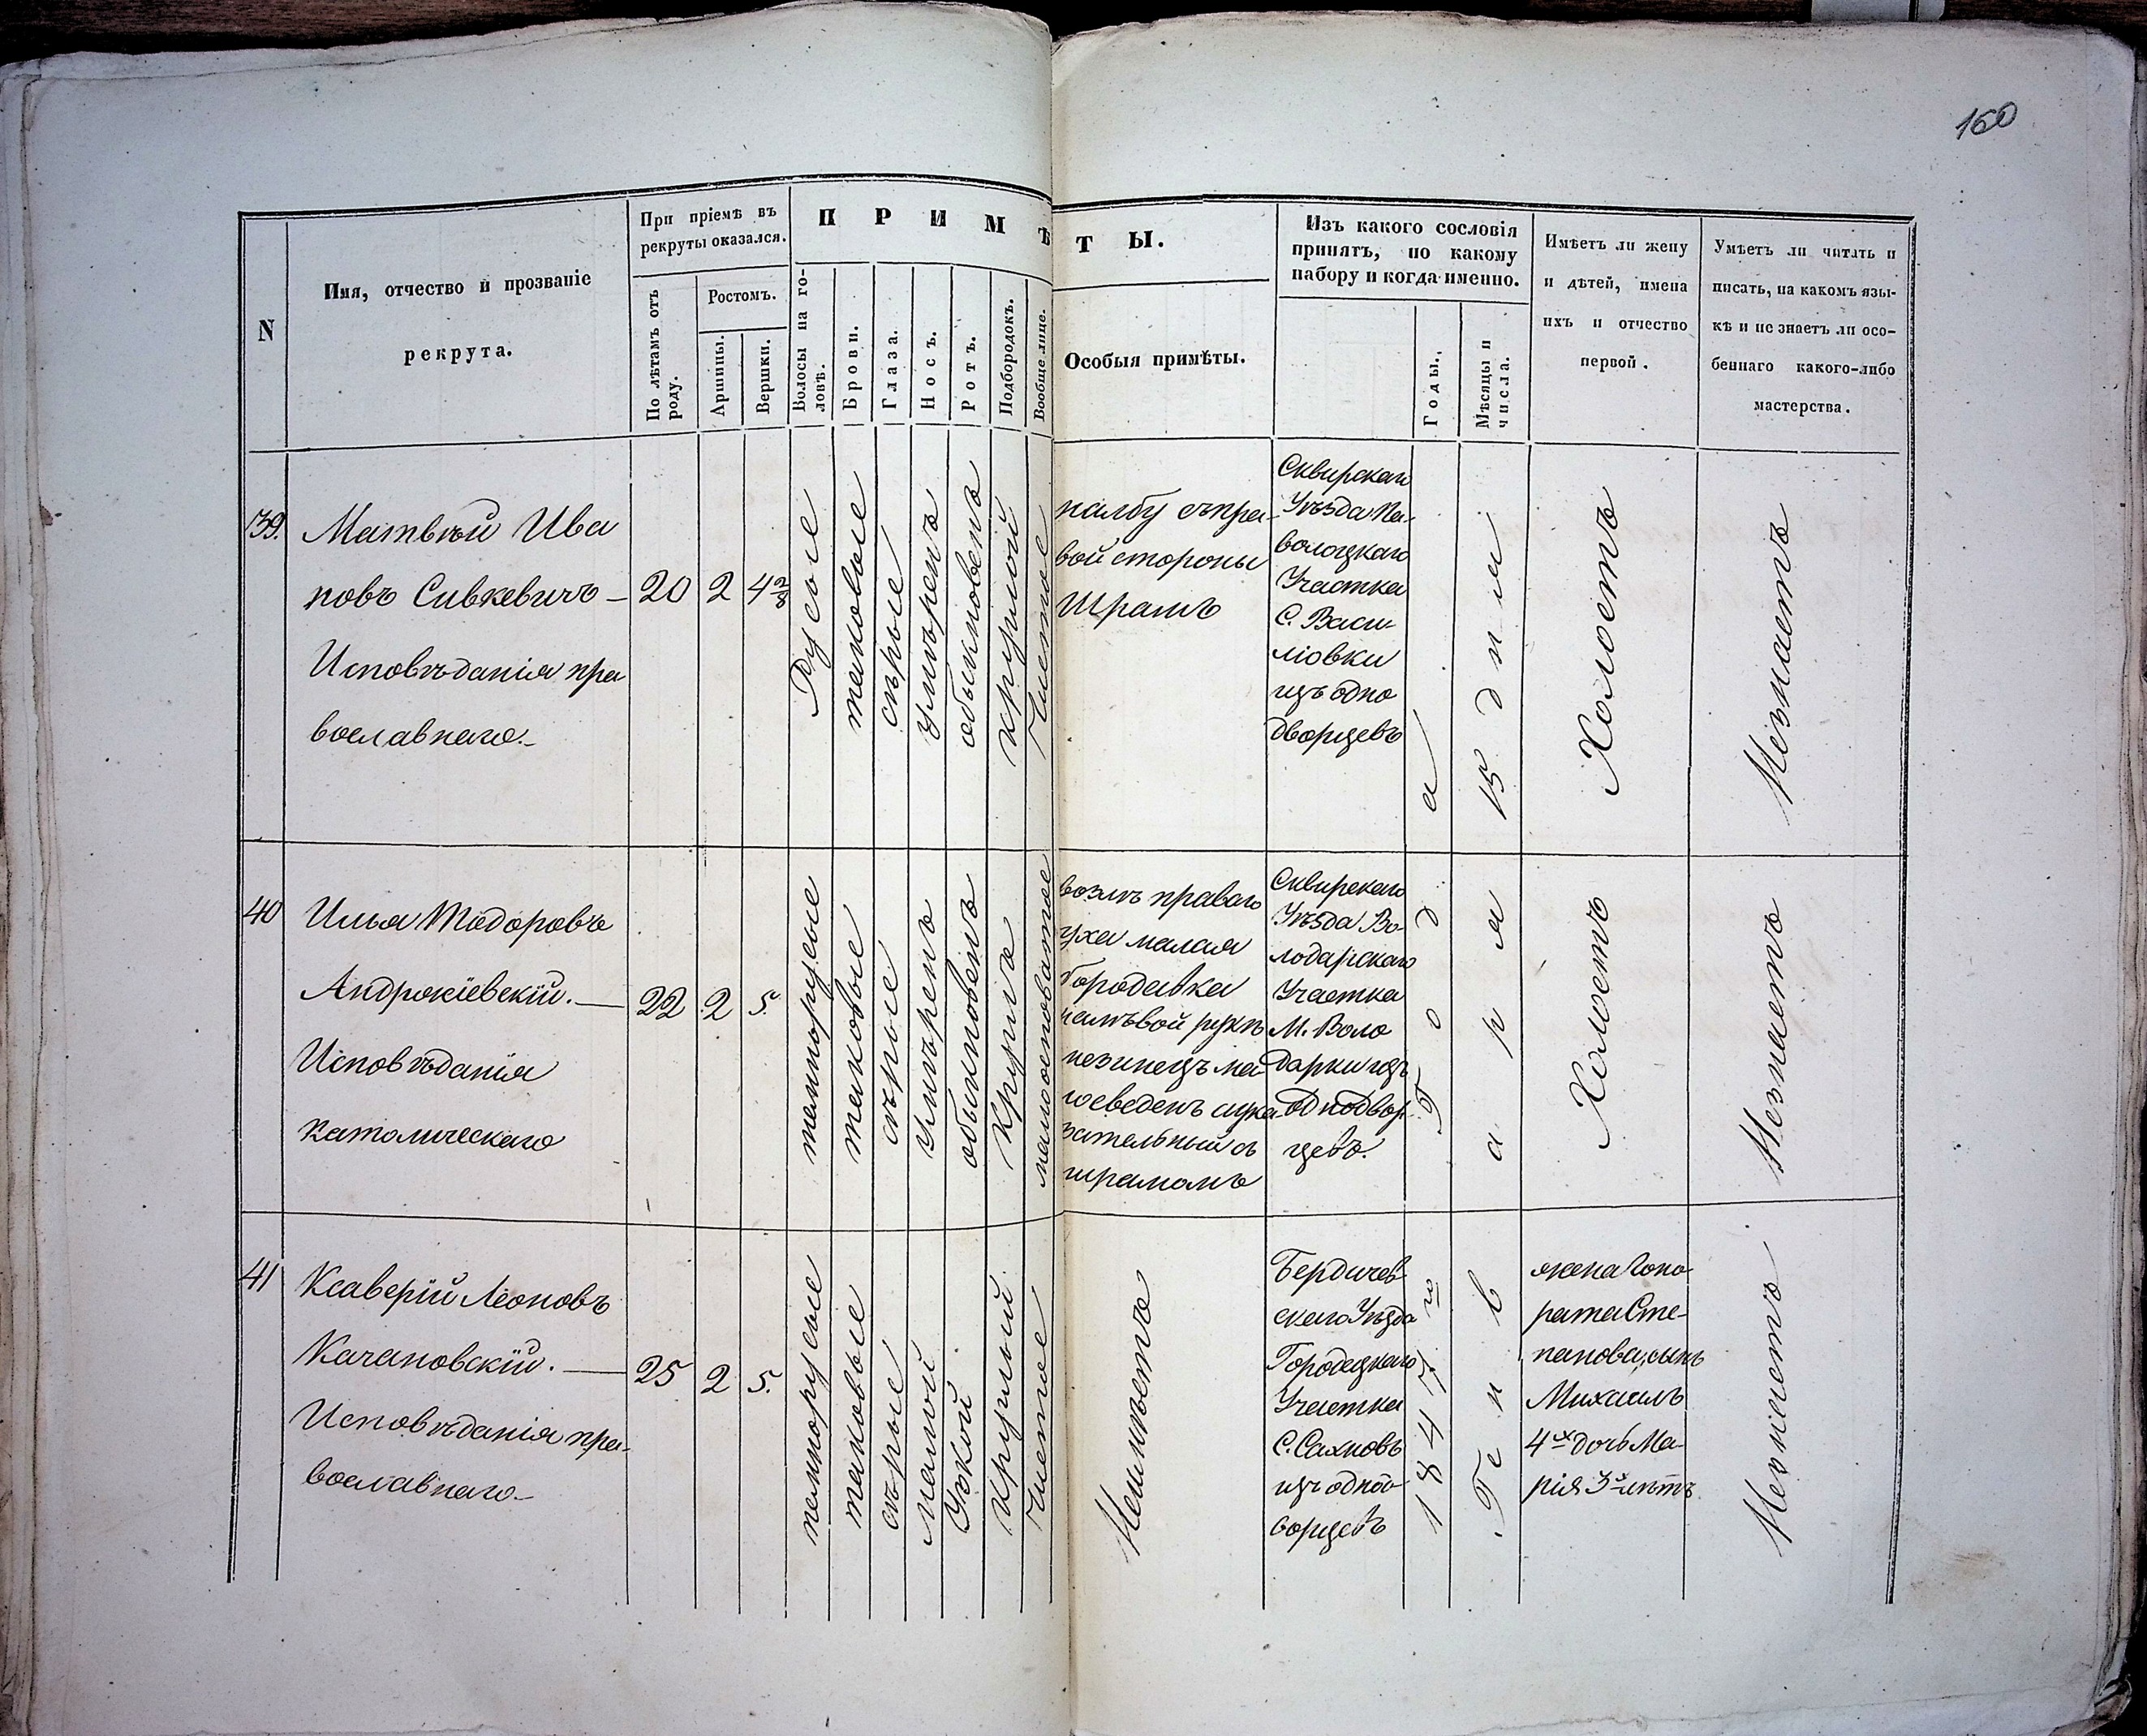 160
N
Имя, отчество и прозваніе
рекрута.
При пріемѣ въ
рекруты оказался.
По лѣтамъ отъ
роду.
Ростомъ.
Аршины.
Вершки.
ПРИМѢТЫ.
Волосы на го-
ловѣ.
Брови.
Глаза.
Носъ.
Ротъ.
Подбородокъ.
Вообще лице.
Особыя примѣты.
Изъ какого сословія
принятъ, по какому
набору и когда именно.
Годы.
Мѣсяцы и
числа.
Имѣетъ ли жену
и дѣтей, имена
ихъ и отчество
первой.
Умѣетъ ли читать и
писать, на какомъ язы-
кѣ и не знаетъ ли осо-
беннаго какого-либо
мастерства.
39.
Матвѣй Ива
новъ Сивкевичъ —
Исповѣданія пра
вославнаго. —
20
2
4 2/8
Русые
таковые
сѣрые
умѣренъ
обыкновенъ
круглой
Чистое
на лбу съ пра-
вой стороны
Шрамъ
Сквирскаго
Уѣзда Па-
волоцкаго
Участка
С. Васи-
ліовки
изъ одно
дворцевъ
Холостъ
Незнаетъ
40
Илья Тодоровъ
Андрокіевскій. —
Исповѣданія
Католическаго
22
2
5.
темнорусые
таковые
сѣрые
Умѣренъ
обыкновенъ
Кругла
малоосповатое
возлѣ праваго
уха малая
бородавка
на лѣвой рукѣ
мезинецъ ма
ло сведенъ и ука-
зательный съ
шрамомъ
Сквирскаго
Уѣзда Во-
лодарскаго
Участка
М. Воло
дарки изъ
однодвор-
цевъ.
Холостъ
Незнаетъ
41
Ксаверій Леоновъ
Качановскій. —
Исповѣданія пра-
вославнаго —
25
2
5.
темнорусые
таковые
сѣрые
малый
Узкой
Круглый
Чистое
Неимѣетъ
Бердичев
скаго Уѣзда
Городецкаго
Участка
С. Сахновъ
изъ одно
ворцевъ
1847 го Года
Генваря 15 дня
жена Гоно
рата Сте-
панова, сынъ
Михаилъ
4 хъ дочь Ма-
рія 3 х лѣтъ
Незнаетъ